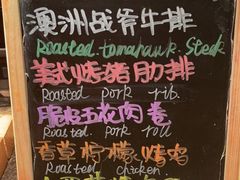 澳洲战斧牛排
Roasted tomahawk Steak
美式烤猪肋排
Roasted pork rib.
脆皮五花肉卷
Roasted. pork roll
香草柠檬烤鸡
Roasted chicken.